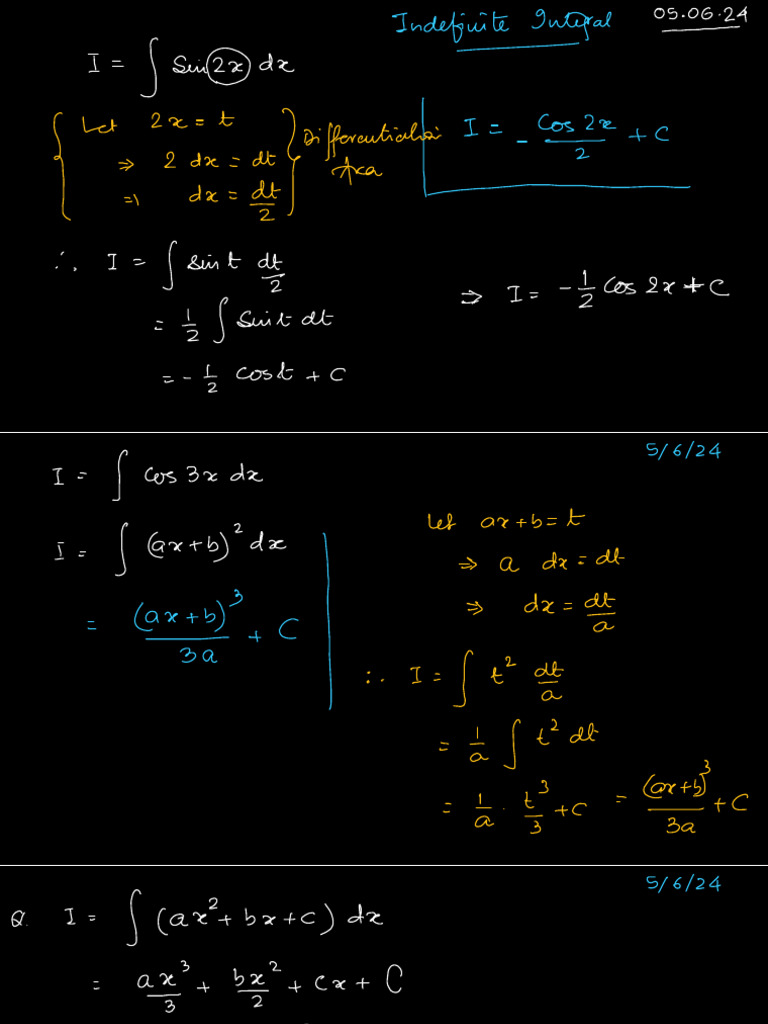 Indefinite Integral 05.06.24
I = ∫ Sin 2x dx
Let 2x = t
⇒ 2 dx = dt
⇒ dx = dt/2
I = - Cos 2x/2 + C
∴ I = ∫ sin t dt/2
= 1/2 ∫ Sin t dt
= - 1/2 cos t + C
⇒ I = - 1/2 Cos 2x + C
5/6/24
I = ∫ Cos 3x dx
I = ∫ (ax+b)² dx
= (ax+b)³/3a + C
Let ax+b = t
⇒ a dx = dt
⇒ dx = dt/a
∴ I = ∫ t² dt/a
= 1/a ∫ t² dt
= 1/a · t³/3 + C = (ax+b)³/3a + C
5/6/24
Q. I = ∫ (ax² + bx + c) dx
= ax³/3 + bx²/2 + cx + C